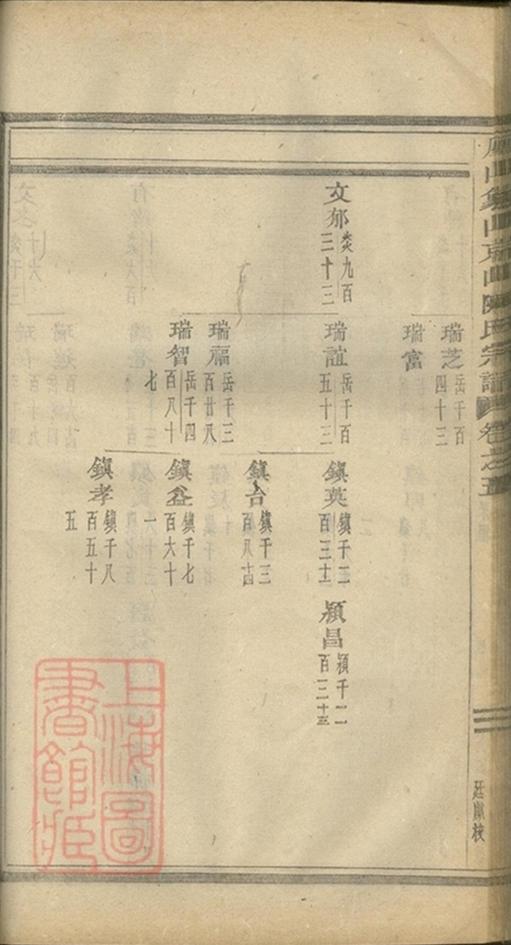 山象山東山陳氏宗譜 卷之五
瑞芝 岳千百
四十三
瑞富
文郁 炎九百
三十三
瑞誼 岳千百
五十三
鎮英 鎮千二
百三十一
潁昌 潁千二
百三十三
瑞福 岳千三
百廿八
鎮吉 鎮千三
百八十四
瑞智 岳千四
百八十
七
鎮益 鎮千七
百六十
一
鎮孝 鎮千八
百五十
五
上海圖
書館藏